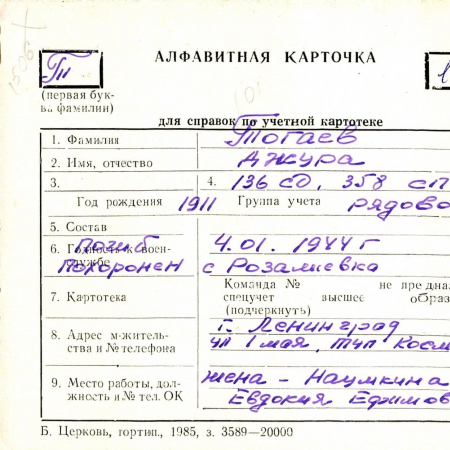 1506
АЛФАВИТНАЯ КАРТОЧКА
Т
(первая бук-
ва фамилии)
для справок по учетной картотеке
1. Фамилия Тогаев
2. Имя, отчество Джура
3. 4. 136 сд, 358 сп
Год рождения 1911 Группа учета рядово
5. Состав
6. Годность к воен-
ной службе
Погиб 4.01.1944 г
Похоронен с Розалиевка
7. Картотека Команда № не предна
спецучет высшее образ
(подчеркнуть)
8. Адрес м-житель-
ства и № телефона
г. Ленинград
ул 1 мая, туп Косм
9. Место работы, дол-
жность и № тел. ОК
жена - Наумкина
Евдокия Ефимов
Б. Церковь, гортип., 1985, з. 3589—20000